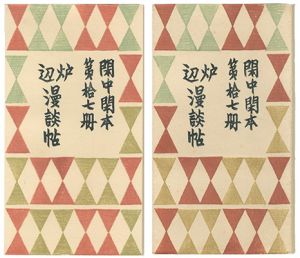 閑中閑本
第拾七册
炉辺漫談帖
閑中閑本
第拾七册
炉辺漫談帖